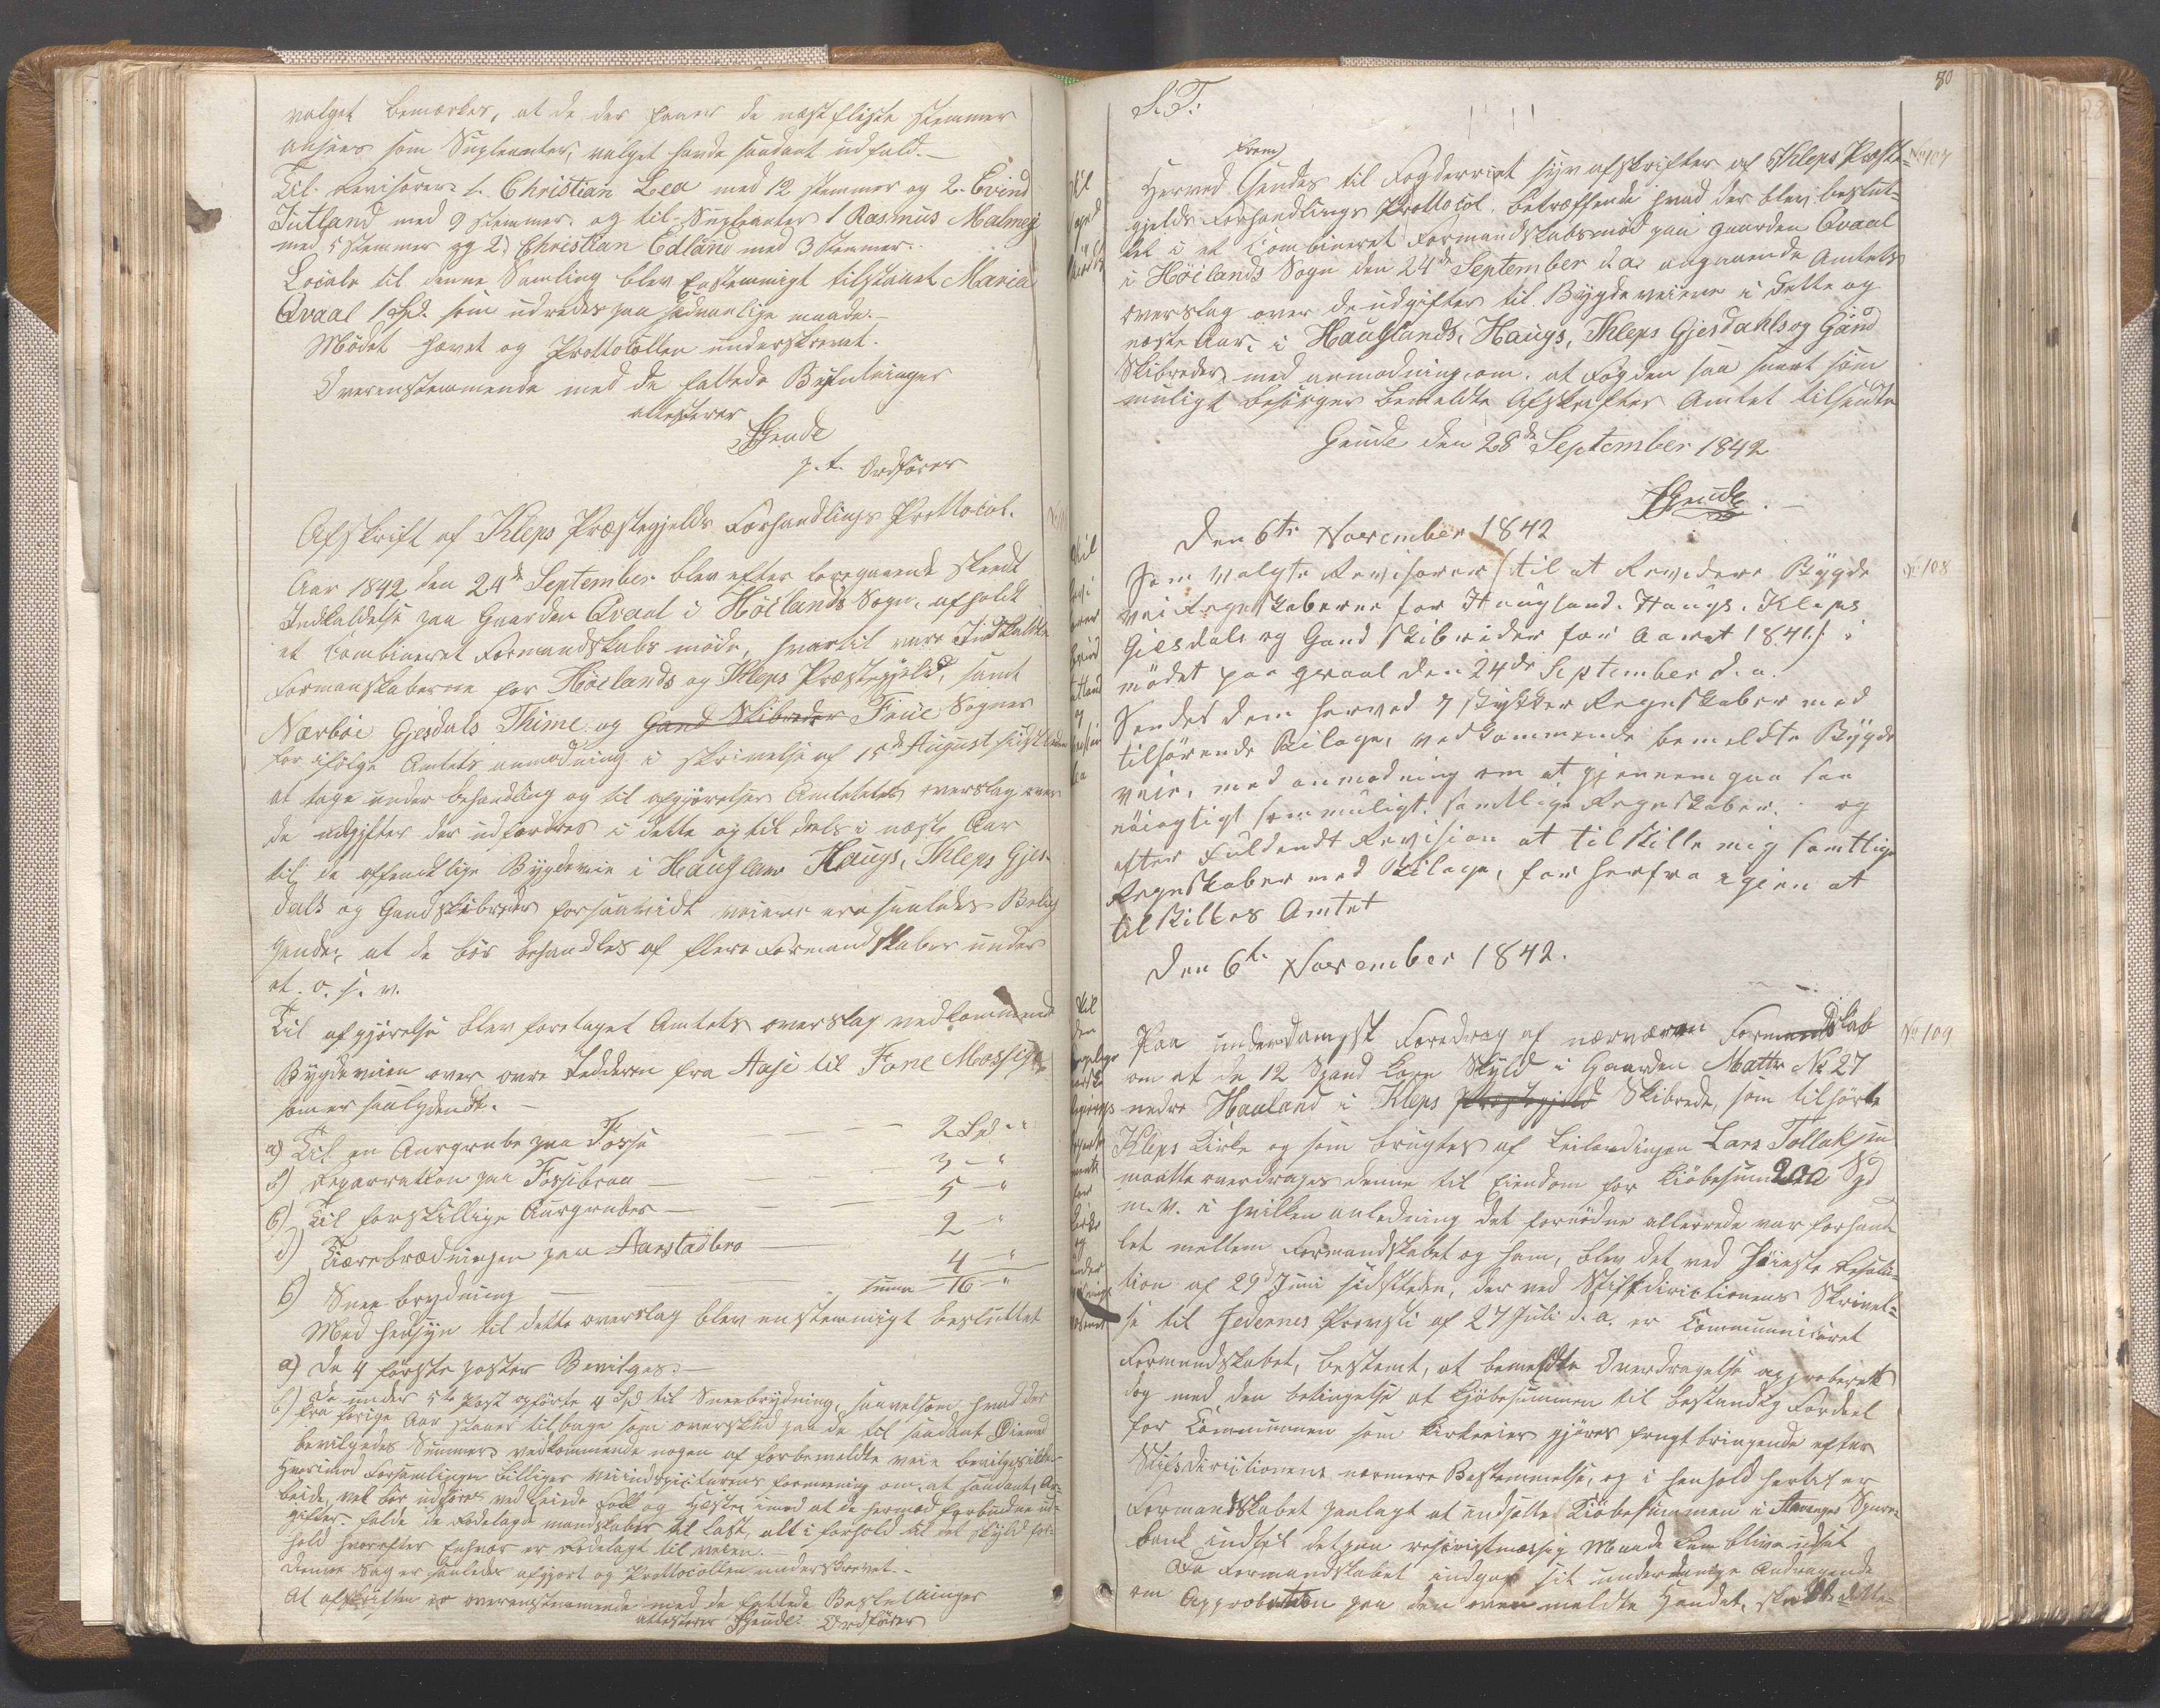 valget bemærkes, at de der faaer de næst fleste stemmer
ansees som Supleanter, valget havde saadant udfald.-
Til Revisorer 1. Christian Lea med 12 stemmer og 2. Evind
Jutland med 9 stemmer. og til Supleanter 1 Rasmus Malmeg
med 5 stemmer og 2) Christian Edland med 3 stemmer.
Locale til denne Samling blev eenstemmigt tilstaaet Maria
Qvaal 1 Spd. som udredes paa sædvanlige maade.-
Mødet hævet og Prottocollen underskrevet.
Overensstemmende med de fattede Beslutninger
attesterer
Gende
p. t. Ordfører
Afskrift af Kleps Præstegjelds Forhandlings Prottocol.
Aar 1842 den 24de September blev efter foregaaende skeedt
Indkaldelse paa Gaarden Qvaal i Höilands Sogn, afholdt
et Combineret Formandskabs møde, hvortil vare Indkaldte
Formanskaberne for Höilands og Kleps Præstegjeld, samt
Nærböe Gjesdals Thime og Gand Skibreder Frue Sogner
for ifølge Amtets anmodning i skrivelse af 15de August sidstleden
at tage under behandling og til afgjørelse Amtets overslag over
de udgifter der udfordres i dette og til deels i næste Aar
til de offentlige Bygdeveie i Haugland Haugs, Kleps Gjes-
dals og Gand skibreder forsaavidt veiene ere saaledes Belig
gende, at de bør behandles af flere Formandskaber under
et. o. s. v.
Til afgjørelse blev foretaget Amtets overslag vedkommende
Bygdeveien over øvre Jedderen fra Aase til Fone Mossige
som er saalydende.-
a) Til en Aurgrube paa Fosse — 2 Spd "
b) Reparation paa Fossebroe — 3 — "
c) Til forskillige Aurgruber — 5 — "
d) Tiærebrædningen paa Aarstadbro — 2 — "
e) Snee brydning — 4 — "
summa 16 — "
Med hensyn til dette overslag blev eenstemmigt besluttet
a) De 4 første poster Bevilges.-
b) De under 5te Post opførte 4 Spd til Sneebrydning, saavelsom hvad der
fra forige Aar staaer tilbage som overskud paa de til saadant Øiemed
bevilgede Summer vedkommende nogen af forbemeldte veie bevilges ikke
Hvorimod Forsamlingen billiger veiinspecteurens formening om, at saadant Ar-
beide, vel bør udføres ved leiede folk og Heste, imod at de hermed forbundne ud-
gifter falde de Rodelagte mandskaber til last, alt i forhold til det skyld for-
hold hvorefter enhver er Rodelagt til veien.
denne sag er saaledes afgjort og Prottocollen underskrevet.-
At afskriften er overensstemmende med de fattede Beslutninger
attesterer Gende Ordfører
80
S. T.
frem
Herved Sendes til Fogderiet syv afskrifter af Kleps Præste- No 107
gjelds Forhandlings Prottocol, betræffende hvad der blev beslut-
tet i et Combineret Formandskabsmød paa Gaarden Qvaal
i Höilands Sogn den 24de September d. a. angaaende Amtets
overslag over de udgifter til Bygdeveiene i dette og
næste Aar i Hauglands, Haugs, Kleps Gjesdahls og Gand
Skibreder med anmodning om, at Fogden saa snart som
muligt besørger bemeldte Afskrifter Amtet tilsendte
Gende den 28de September 1842
Gende
Den 6te November 1842
Som valgte Revisorer (til at Revidere Bygde No 108
vei Regnskaberne for Haugland. Haugs. Kleps
Giesdals og Gand skibreder for Aaret 1841) i
mødet paa Qvaal den 24de September d. a.
Sendes dem herved 7 stykker Regnskaber med
tilhørende Bilage, vedkommende bemeldte Bygde
veie, med anmodning om at gjennemgaa saa
nøiagtigt som muligt samtlige Regnskaber. og
efter Fuldendt Revision at tilstille mig samtlige
Regnskaber med Bilage, for herfra igien at
tilstilles Amtet
Den 6te November 1842.
Paa underdanigst Foredrag af nærværen Formandskab No 109
om at de 12 Spand Korn Skyld i Gaarden Mattr No 27
nedre Hauland i Kleps Præstegjeld Skibrede, som tilhørte
Kleps Kirke og som brugtes af Leilendingen Lars Tollaksen
maatte overdrages denne til Eiendom for Kiøbesum 200 Spd
m. v. i hvilken anledning det fornødne allerede var forhand
let mellem Formandskabet og ham, blev det ved Høieste Resolu-
tion af 29de Juni sidstleden, der ved Stiftdirectionens Skrivel-
se til Jedernes Provsti af 27 Juli d. a. er Communiceret
Formandskabet, bestemt, at bemeldte Overdragelse approberet
dog med den betingelse at Kjøbesummen til bestandig Fordeel
for Communen som kirkeeier gjøres frugtbringende efter
Stiftsdirectionens nærmere Bestemmelse, og i henhold hertil er
Formandskabet paalagt at indsætte Kiøbesummen i Stavanger Spare-
bank indtil det paa reskriptmæssig Maade kan blive udsat
Da Formandskabet indgav sit underdanige Andragende
om Approbation paa den ovenmeldte Handel, skeede dette